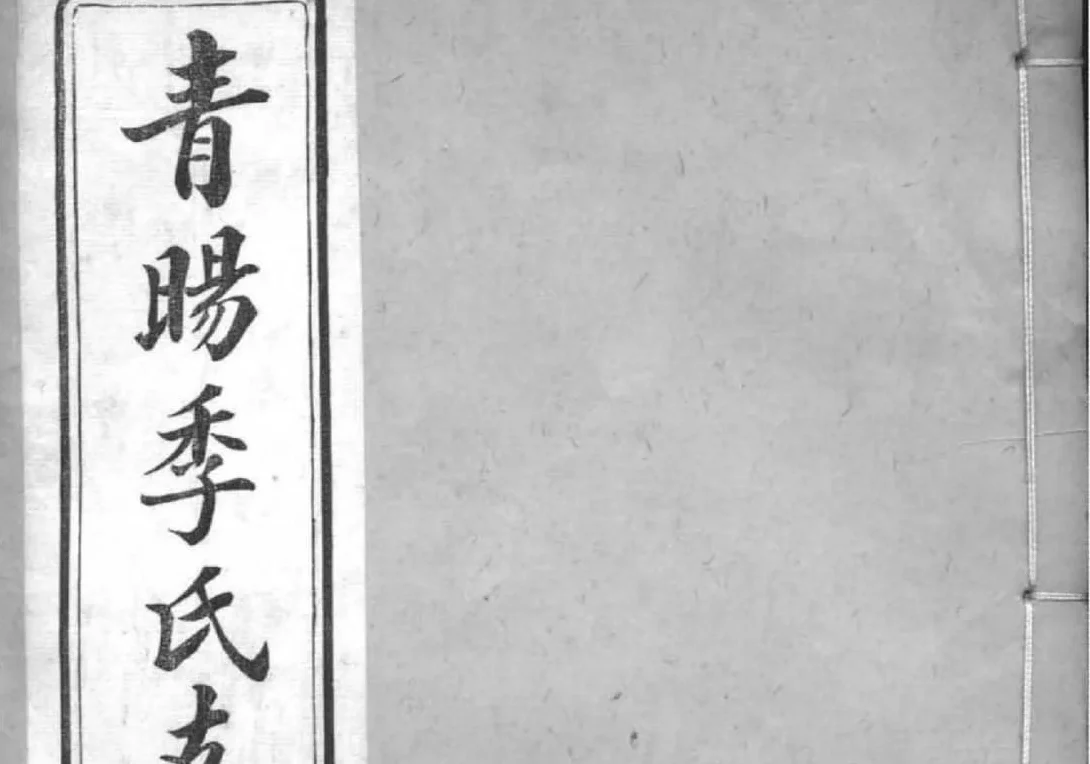 青暘季氏支